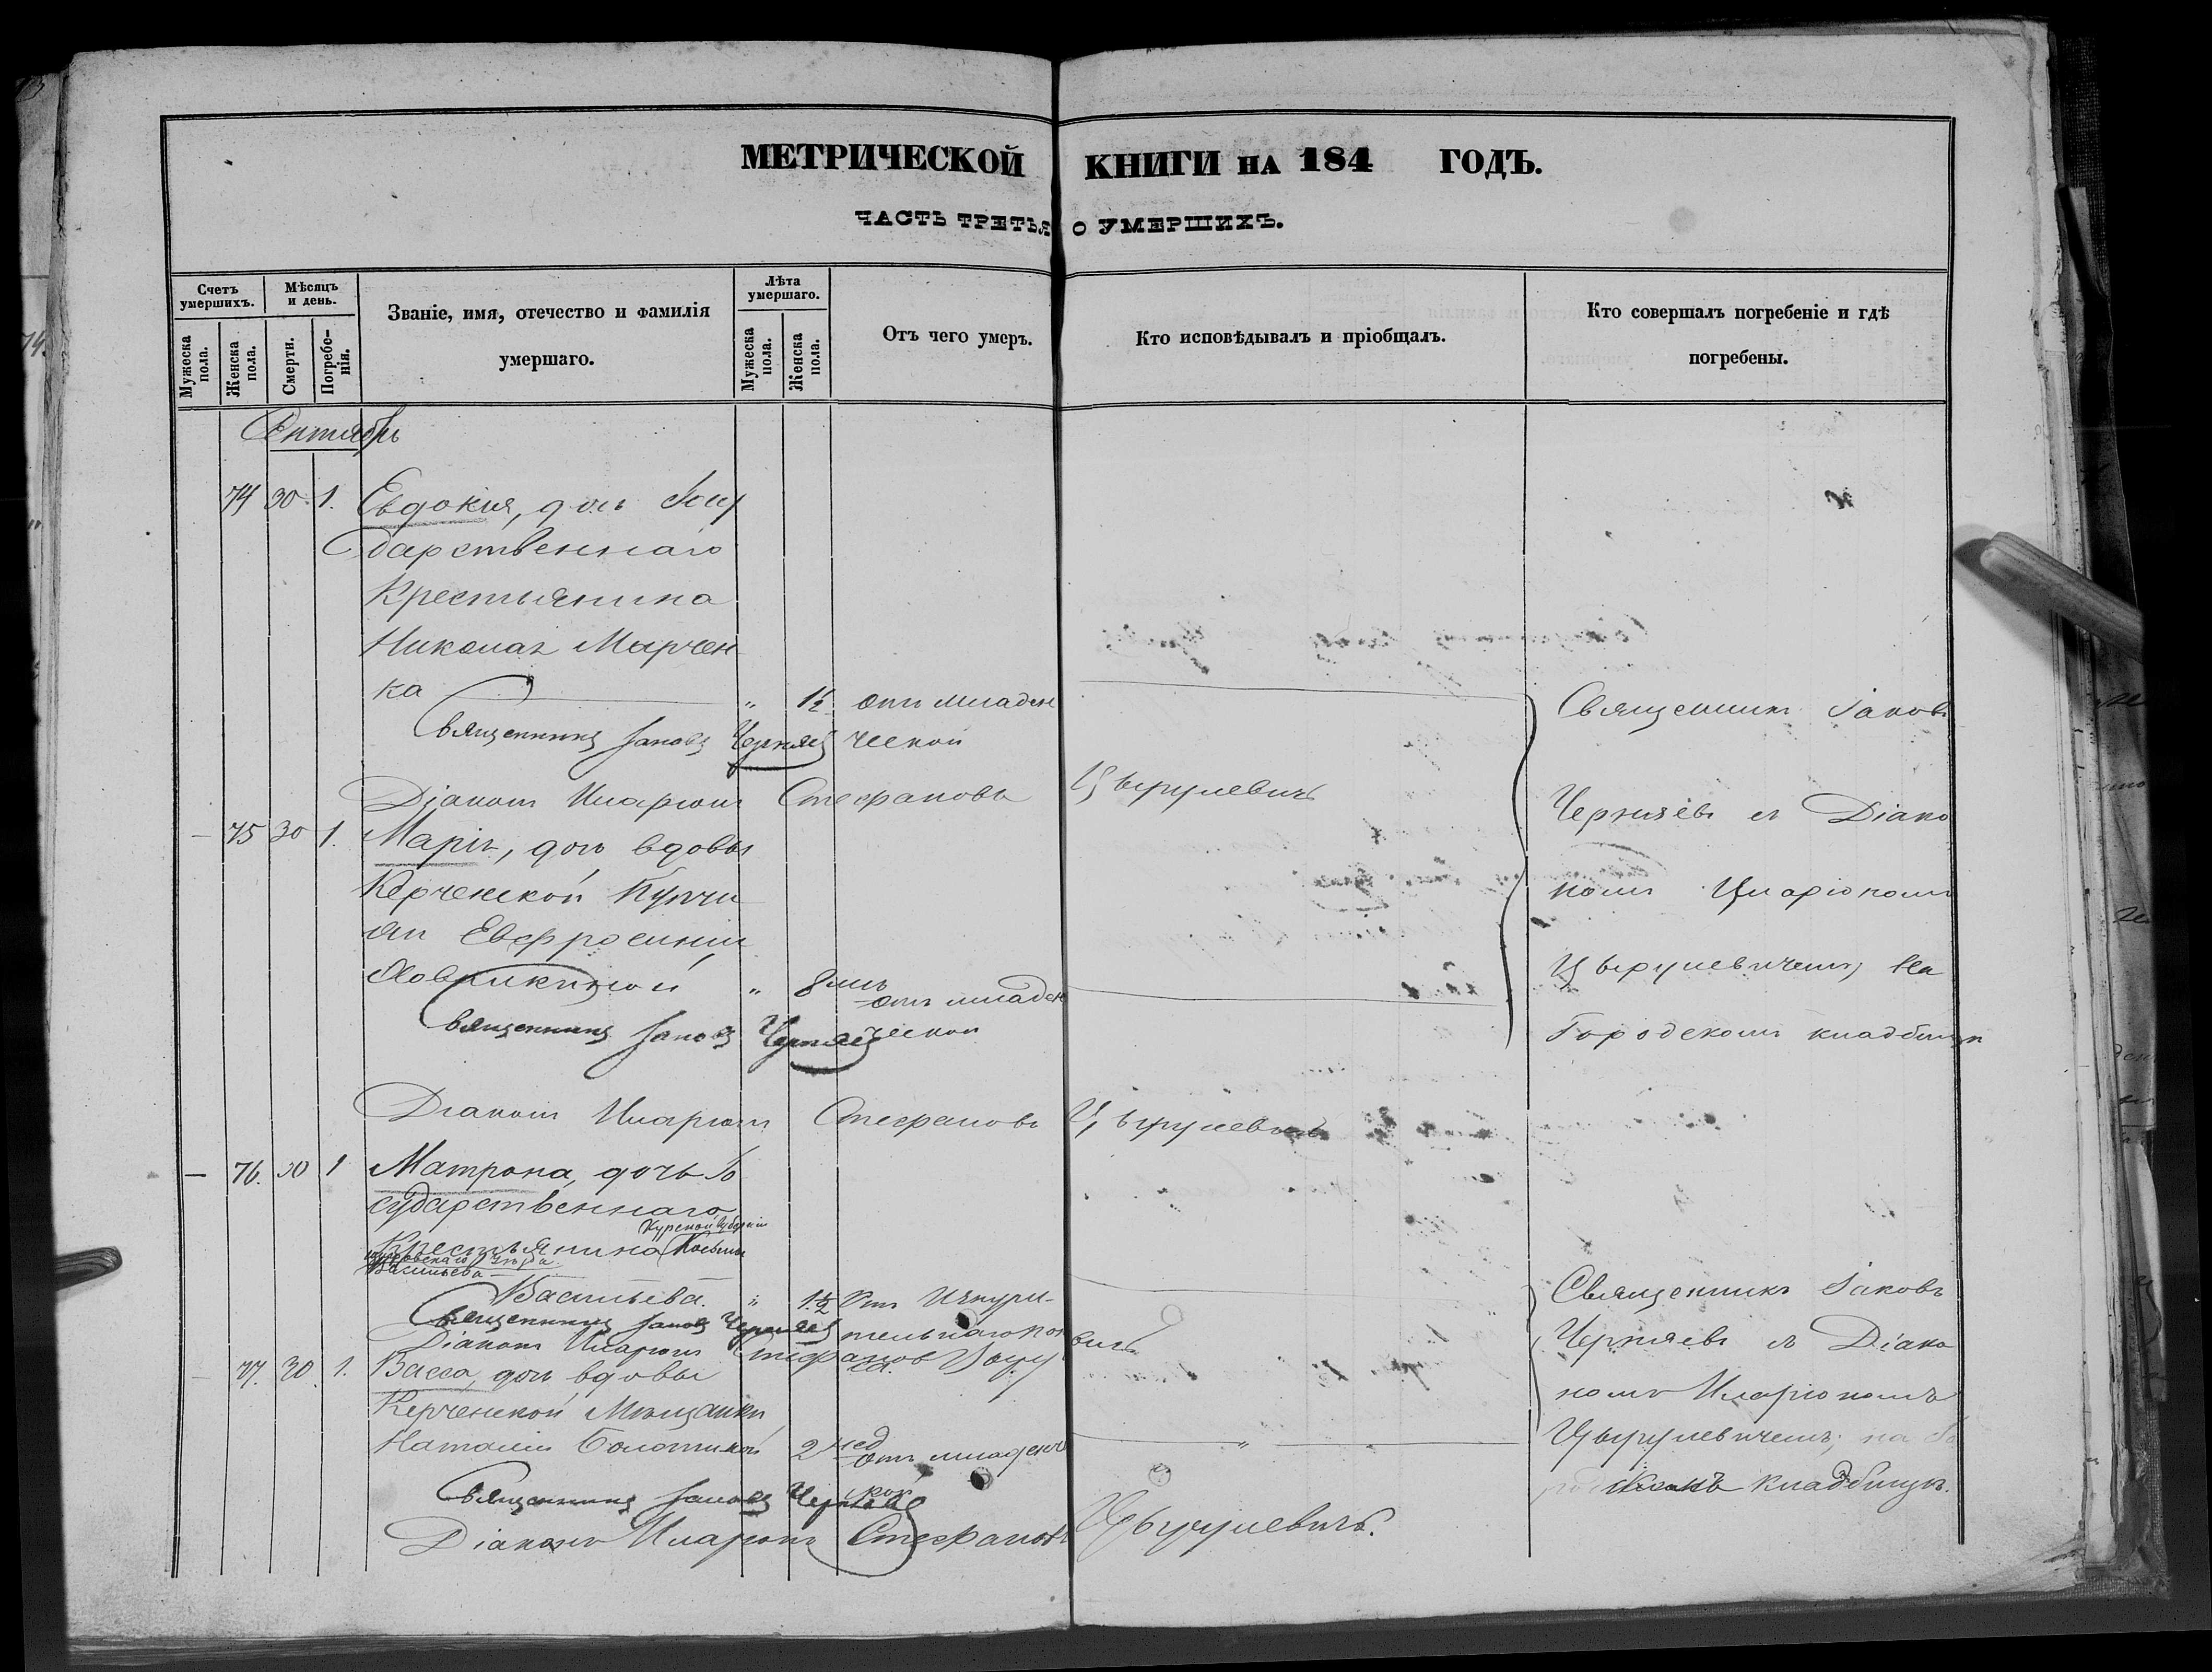 МЕТРИЧЕСКОЙ КНИГИ НА 184 ГОДЪ.
ЧАСТЬ ТРЕТЬЯ О УМЕРШИХЪ.
Счетъ умершихъ.
Мужеска пола.
Женска пола.
Мѣсяцъ и день.
Смерти.
Погребенія.
Званіе, имя, отечество и фамилія
умершаго.
Лѣта умершаго.
Мужеска пола.
Женска пола.
Отъ чего умеръ.
Кто исповѣдывалъ и пріобщалъ.
Кто совершалъ погребеніе и гдѣ
погребены.
Сентябрь
74 30 1. Евдокия, дочь Госу
дарственнаго
Крестьянина
Николая Марчен
ка " 1½ отъ младен
Священникъ Іаковъ Черняев ческой
Діаконъ Иларіонъ Стефановъ Цырулевичъ
Священникъ Іаковъ
Черняевъ съ Діако
номъ Иларіономъ
Цырулевичемъ, на
Городскомъ кладбищѣ
— 75 30 1. Марія, дочь вдовы
Керченской Купчи
хи Евфросиніи
" 8 мъ отъ младен
Священникъ Іаковъ Черняев ческой
Діаконъ Иларіонъ Стефановъ Цырулевичъ
— 76. 30 1 Матрона, дочь Го
сударственнаго
Курской Губерніи
Крестьянина Косьмы
уѣзда
Васильева
Васильева. " 1½ Отъ Изнури-
Священникъ Іаковъ Черняев тельнаго
Діаконъ Иларіонъ Стефанов Цыру вичъ
Священникъ Іаковъ
Черняевъ съ Діако
номъ Иларіономъ
Цырулевичемъ, на Го
родскомъ кладбищѣ.
— 77. 30. 1. Васса, дочь вдовы
Керченской Мѣщанки
Наталіи Болотиной 2 нед отъ младенч
"
ской
Священникъ Іаковъ Черняев
Діаконъ Иларіонъ Стефановъ Цырулевичъ.